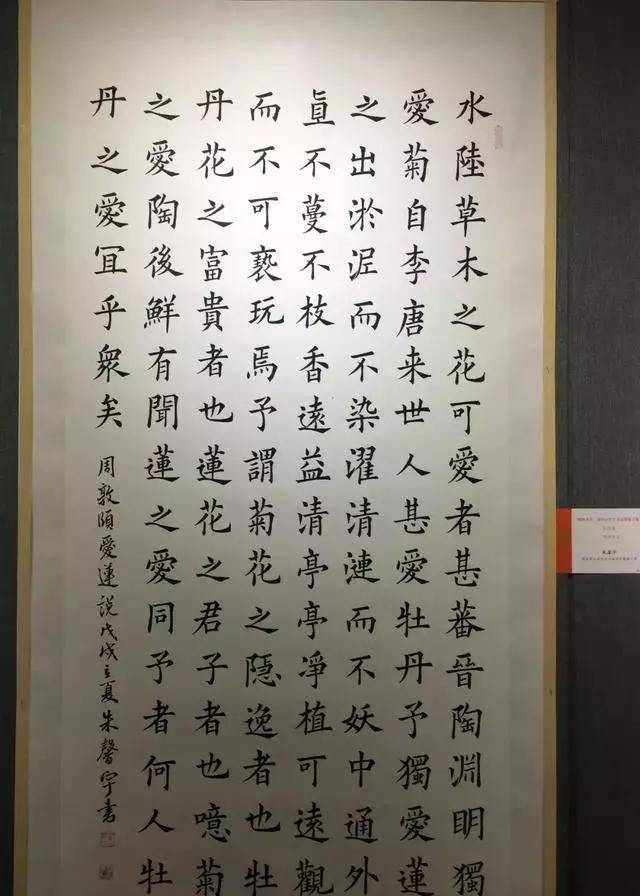 水陸草木之花可愛者甚蕃晉陶淵明獨
愛菊自李唐来世人甚愛牡丹予獨愛蓮
之出淤泥而不染濯清漣而不妖中通外
直不蔓不枝香遠益清亭亭凈植可遠觀
而不可褻玩焉予謂菊花之隱逸者也牡
丹花之富貴者也蓮花之君子者也噫菊
之愛陶後鮮有聞蓮之愛同予者何人牡
丹之愛宜乎衆矣
周敦頤愛蓮説戊戌立夏朱馨宇書